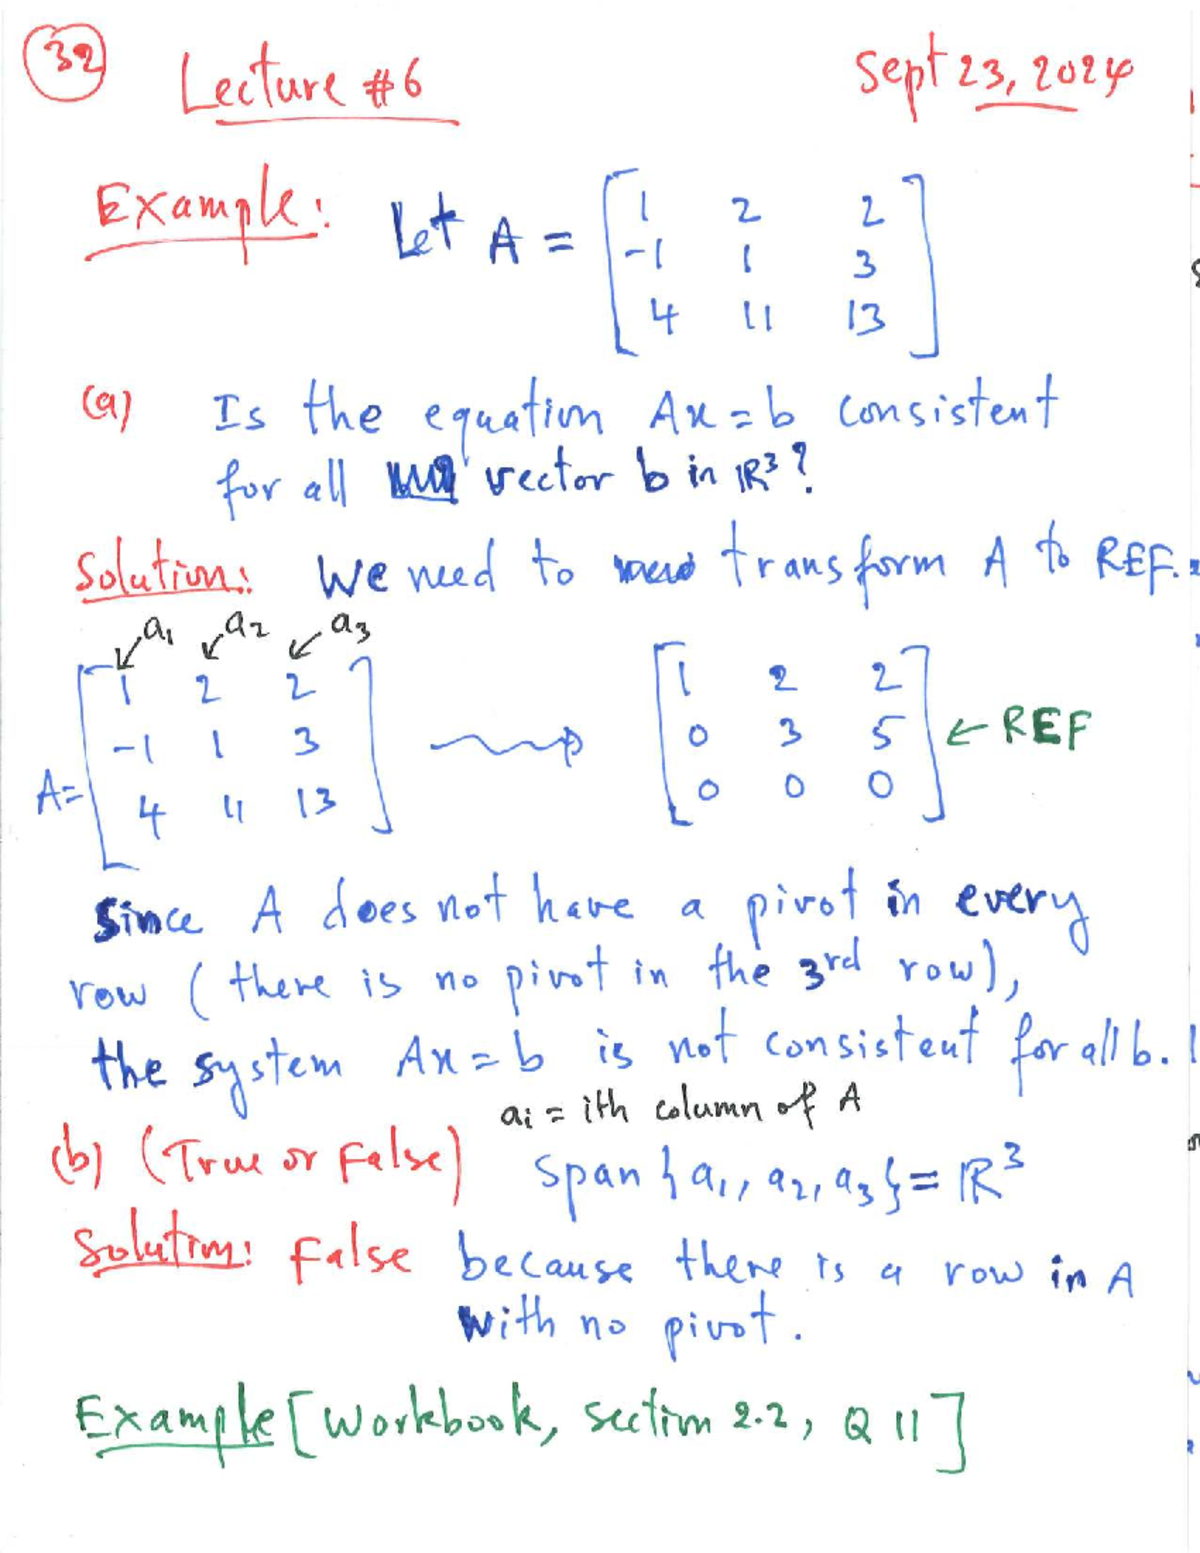 32
Lecture #6
Sept 23, 2024
Example: Let A = [1 2 2
-1 1 3
4 11 13]
(a) Is the equation Ax=b consistent
for all vector b in ℝ³?
Solution: We need to transform A to REF.
a₁ a₂ a₃
A= [1 2 2 [1 2 2
-1 1 3 0 3 5 ← REF
4 11 13] 0 0 0]
since A does not have a pivot in every
row (there is no pivot in the 3rd row),
the system Ax=b is not consistent for all b.
ai = ith column of A
(b) (True or False) span{a₁, a₂, a₃} = ℝ³
Solution: False because there is a row in A
with no pivot.
Example [Workbook, section 2.2, Q 11]